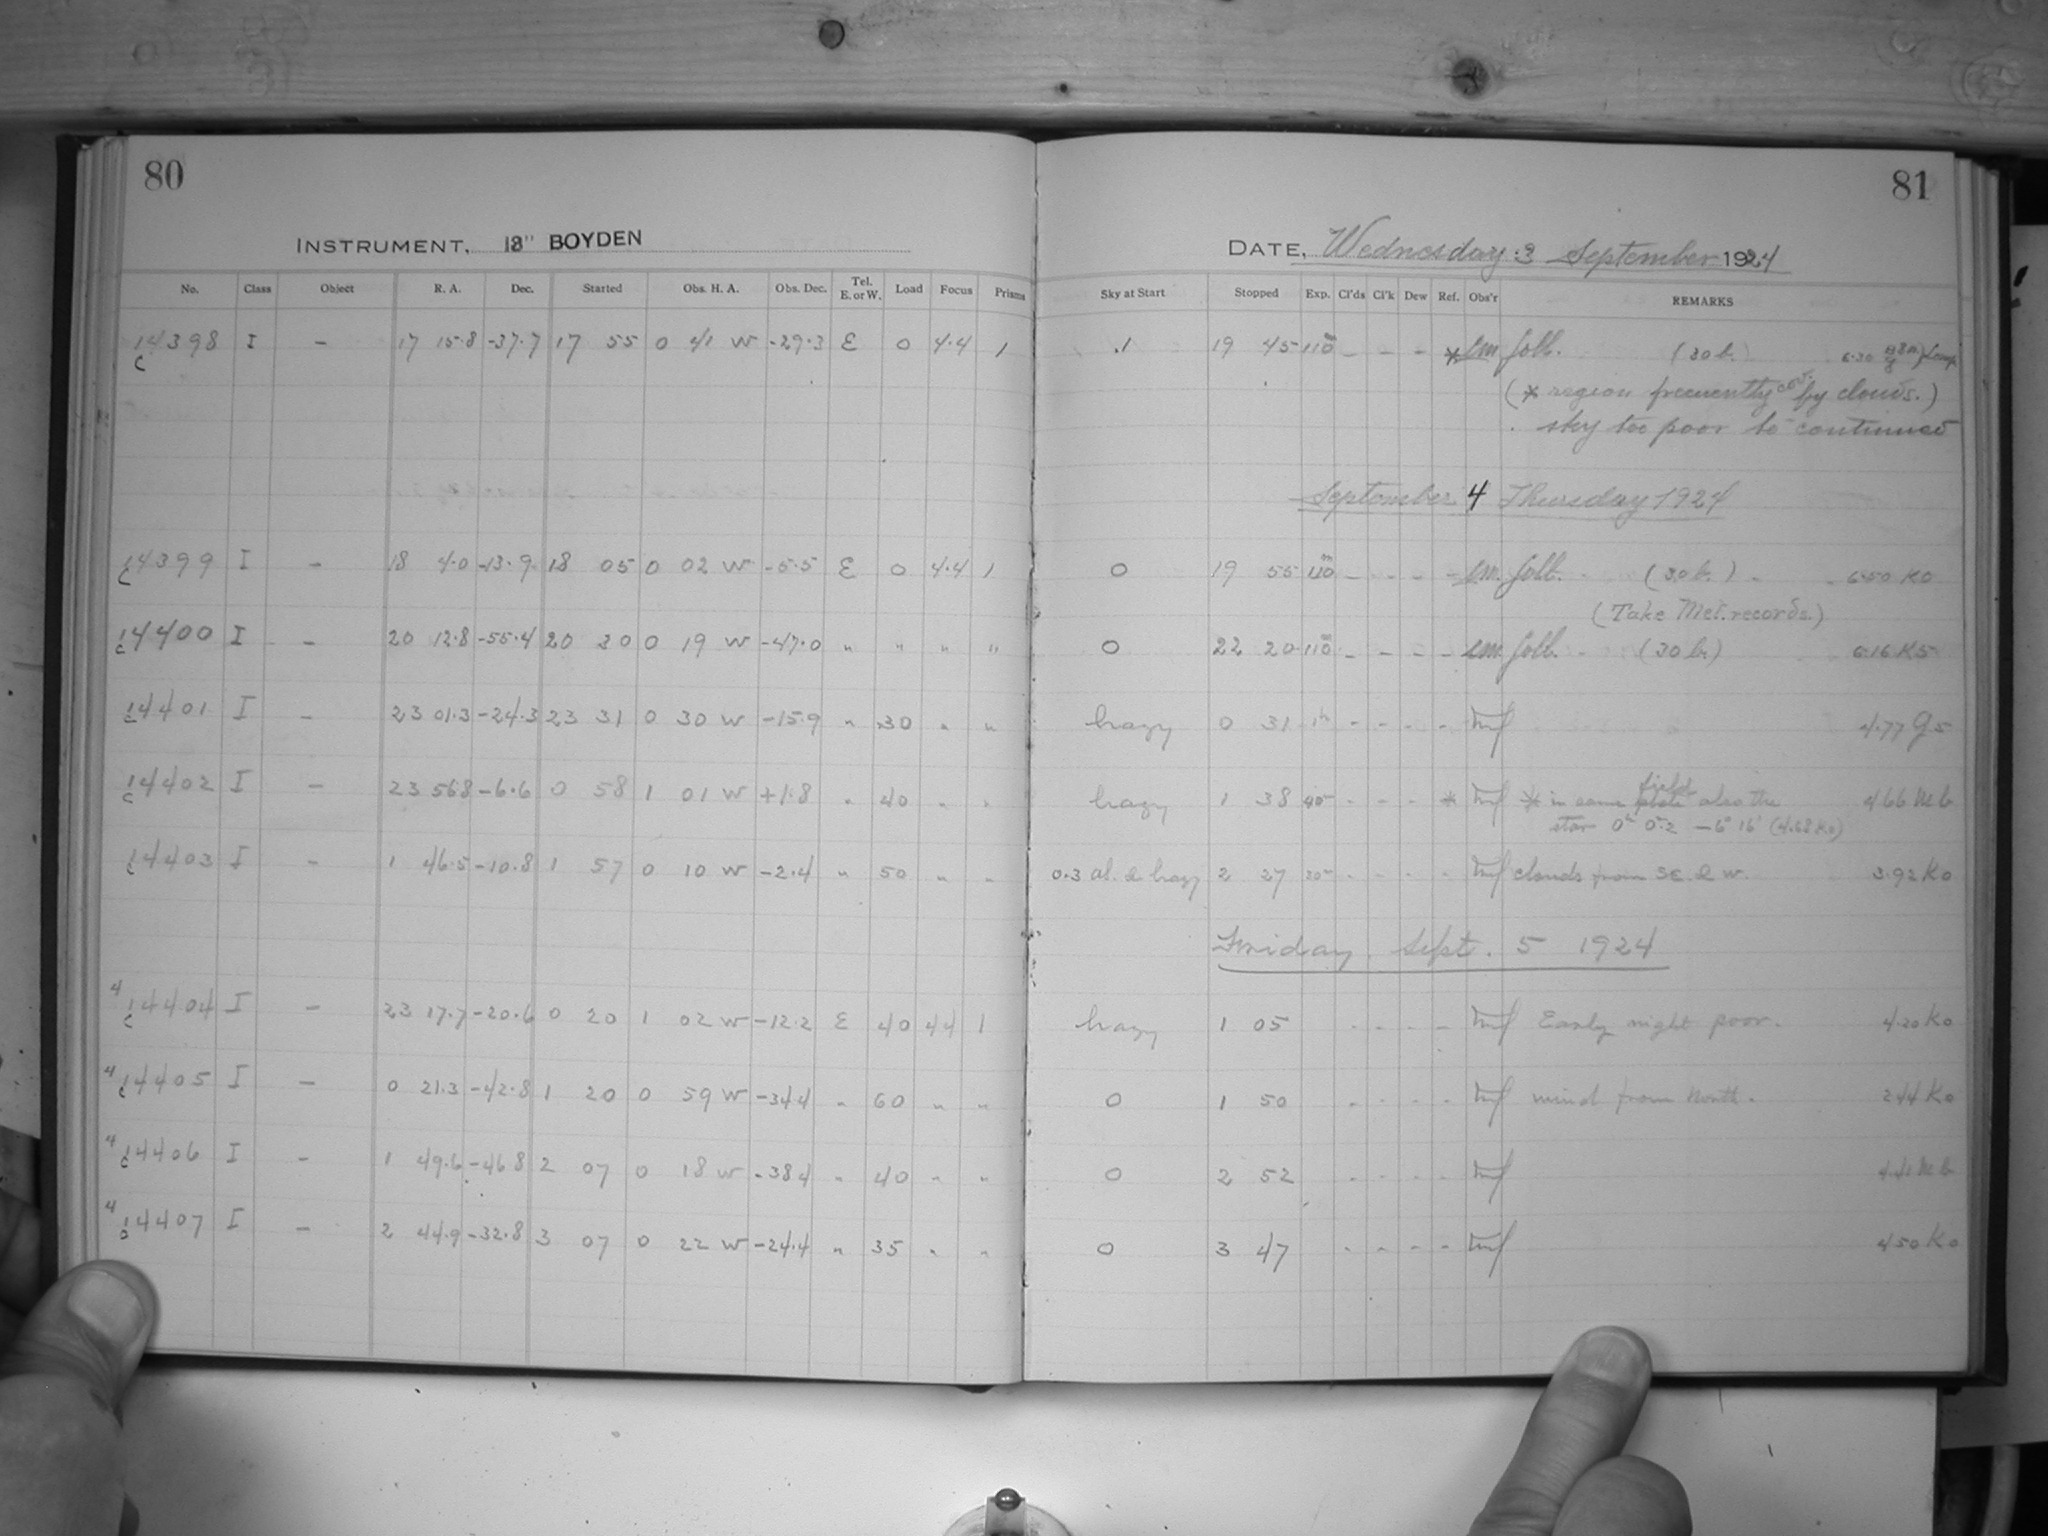 80
INSTRUMENT, 13" BOYDEN
No. Class Object R. A. Dec. Started Obs. H. A. Obs. Dec. Tel. E. or W. Load Focus Prisms
14398 I - 17 15.8 -37.7 17 55 0 41 W -29.3 E 0 4.4 1
C
14399 I - 18 4.0 -13.9 18 05 0 02 W -5.5 E 0 4.4 1
C
14400 I - 20 12.8 -55.4 20 30 0 19 W -47.0 " " " "
C
14401 I - 23 01.3 -24.3 23 31 0 30 W -15.9 " 30 " "
C
14402 I - 23 56.8 -6.6 0 58 1 01 W +1.8 " 40 " "
C
14403 I - 1 46.5 -10.8 1 57 0 10 W -2.4 " 50 " "
C
4 14404 I - 23 17.7 -20.6 0 20 1 02 W -12.2 E 40 44 1
C
4 14405 I - 0 21.3 -42.8 1 20 0 59 W -34.4 " 60 " "
C
4 14406 I - 1 49.6 -46.8 2 07 0 18 W -38.4 " 40 " "
C
4 14407 I - 2 44.9 -32.8 3 07 0 22 W -24.4 " 35 " "
81
DATE, Wednesday 3 September 1924
Sky at Start Stopped Exp. Cl'ds Cl'k Dew Ref. Obs'r REMARKS
.1 19 45 110m - - - * (30 b.) 6.30
(* region frecuently cov. by clouds.)
sky too poor to continued
September 4 Thursday 1924
0 19 55 110m - - - - (30 b.) 6.50 K0
(Take Met. records.)
0 22 20 110m - - - - (30 b.) 6.16 K5
hazy 0 31 1h - - - - 4.77 G5
hazy 1 38 40 - - - * * in same field also the 4.66 Mb
star 0h 0.2 -6° 16' (4.68 K0)
0.3 al. & hazy 2 27 30 - - - - clouds from SE. & W. 3.92 K0
Friday Sept. 5 1924
hazy 1 05 - - - - Early night poor. 4.20 K0
0 1 50 - - - - wind from North. 2.44 K0
0 2 52 - - - - 4.41 Mb
0 3 47 - - - - 4.50 K0